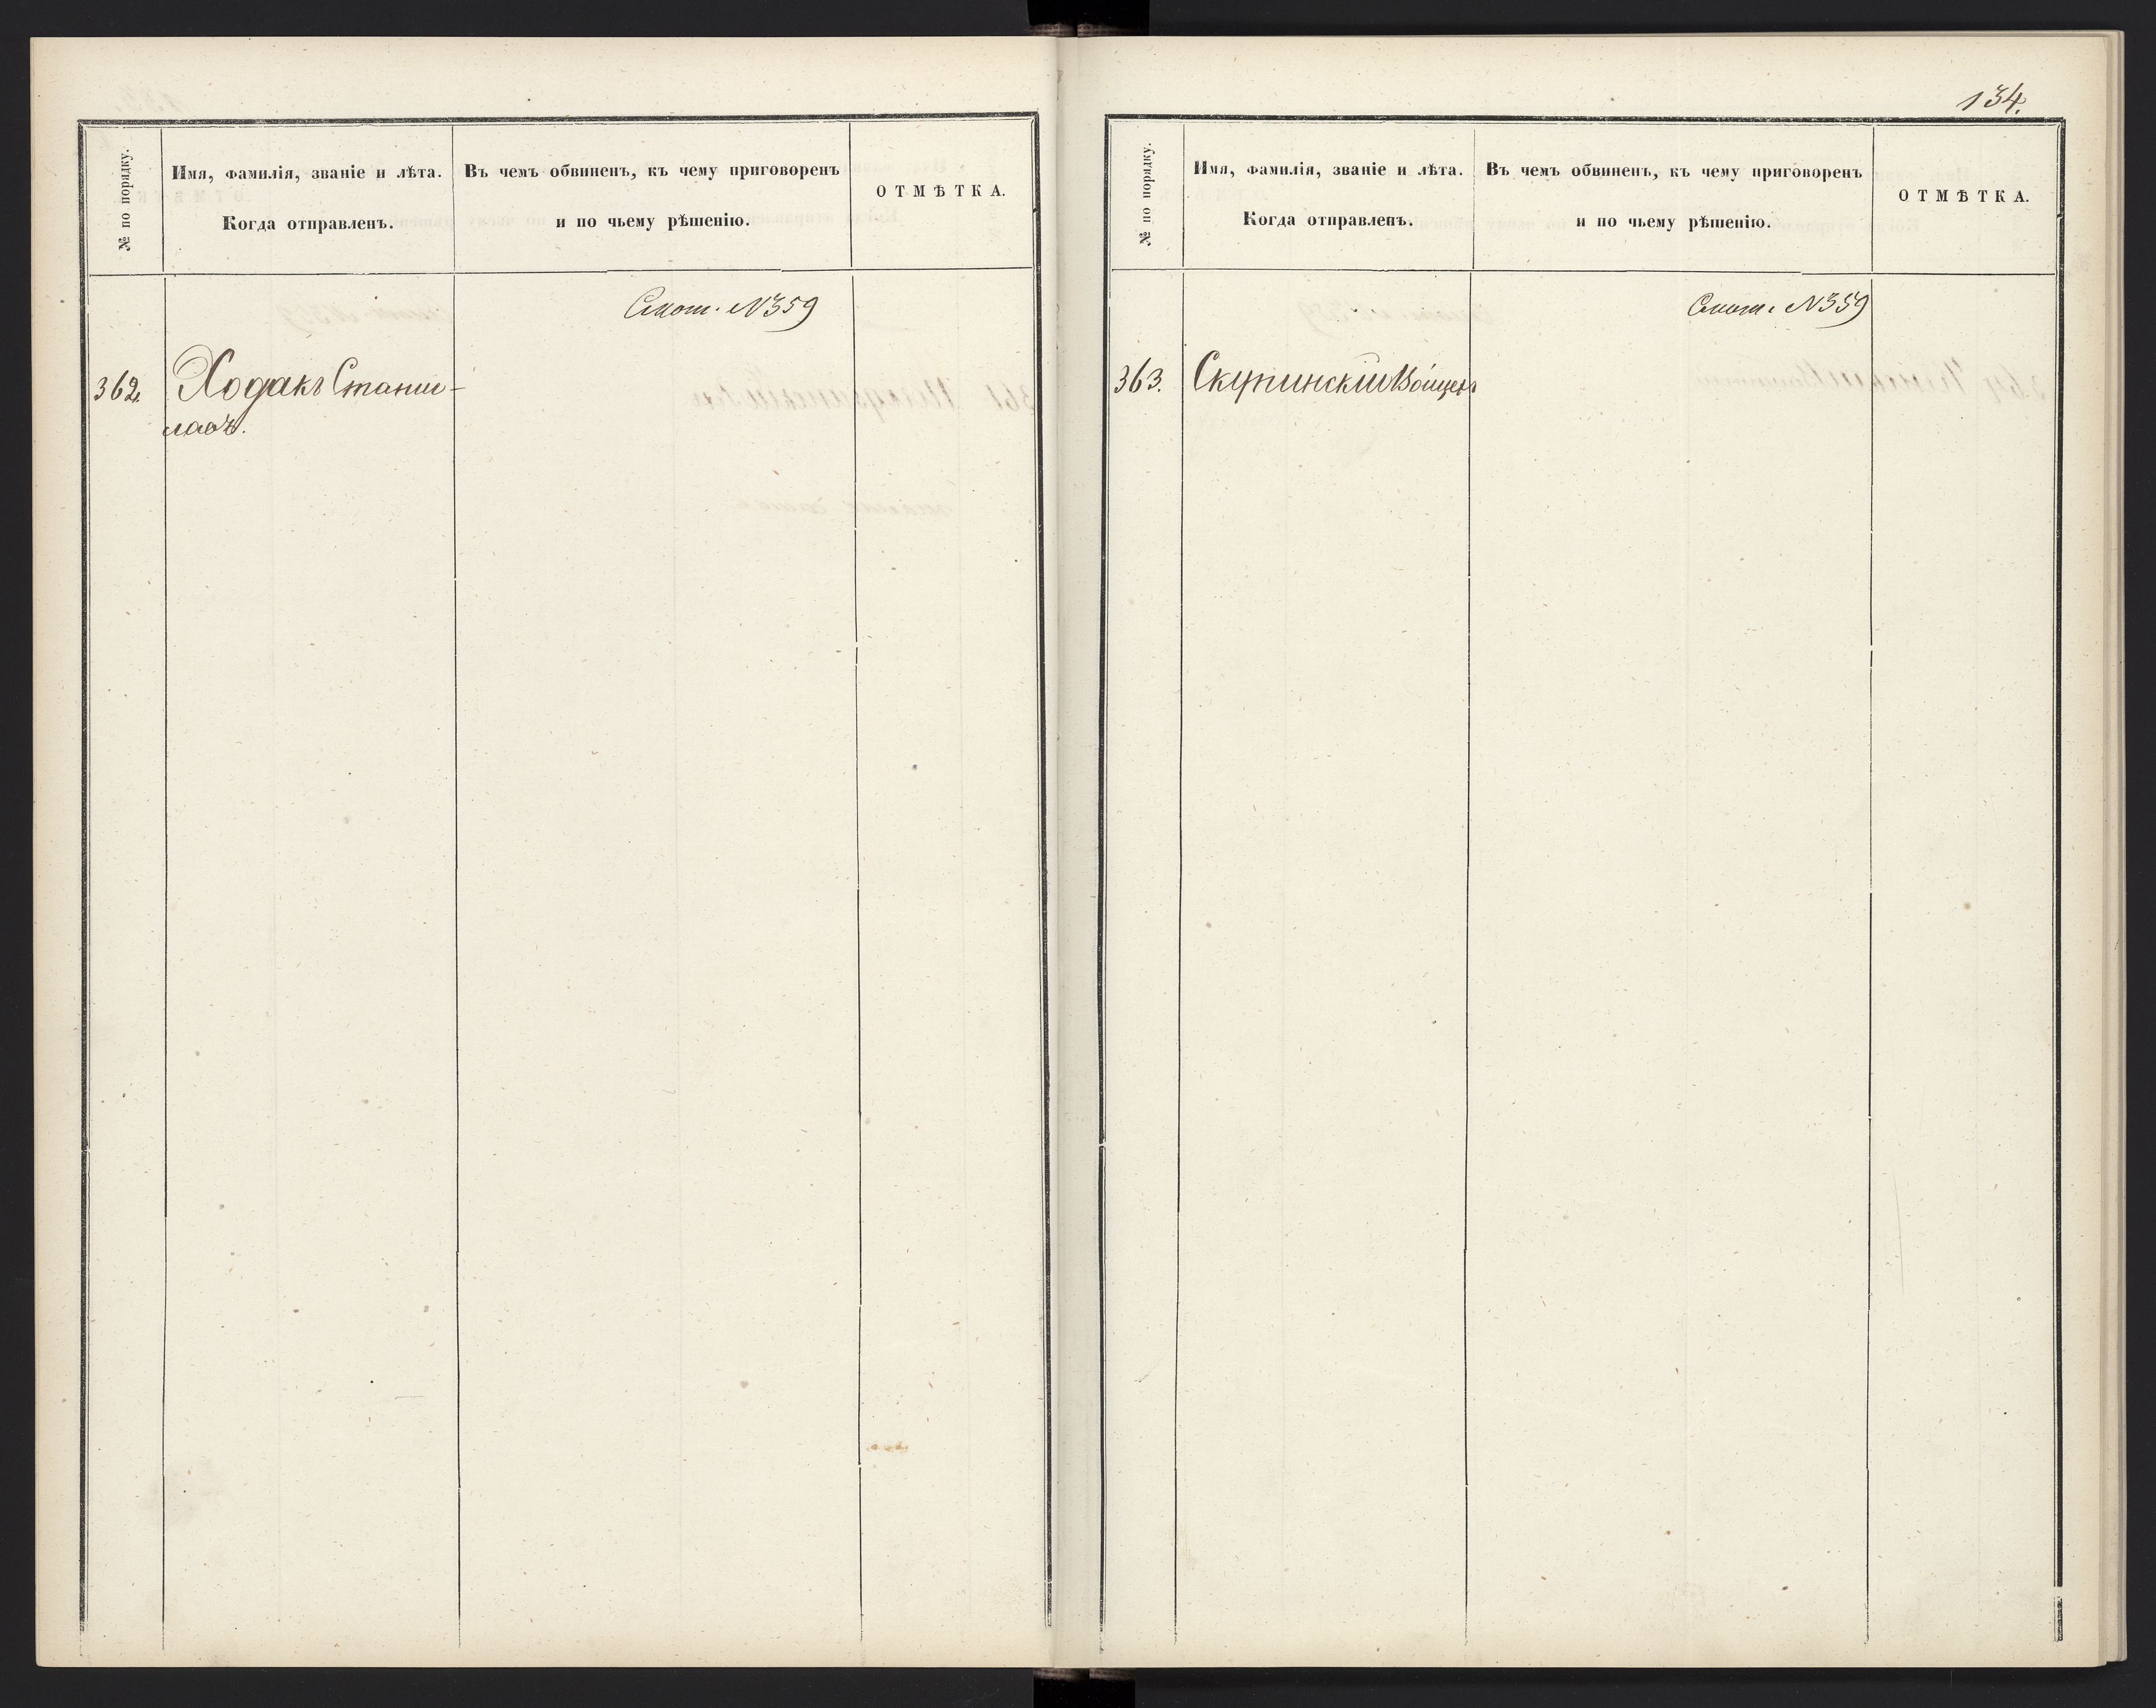 № по порядку.
Имя, фамилія, званіе и лѣта.
Когда отправленъ.
Въ чемъ обвиненъ, къ чему приговоренъ
и по чьему рѣшенію.
ОТМѢТКА.
Смот. №359
362. Ходакъ Стани-
лавъ.
134.
№ по порядку.
Имя, фамилія, званіе и лѣта.
Когда отправленъ.
Въ чемъ обвиненъ, къ чему приговоренъ
и по чьему рѣшенію.
ОТМѢТКА.
Смот. №359
363. Скупинскій Войцехъ